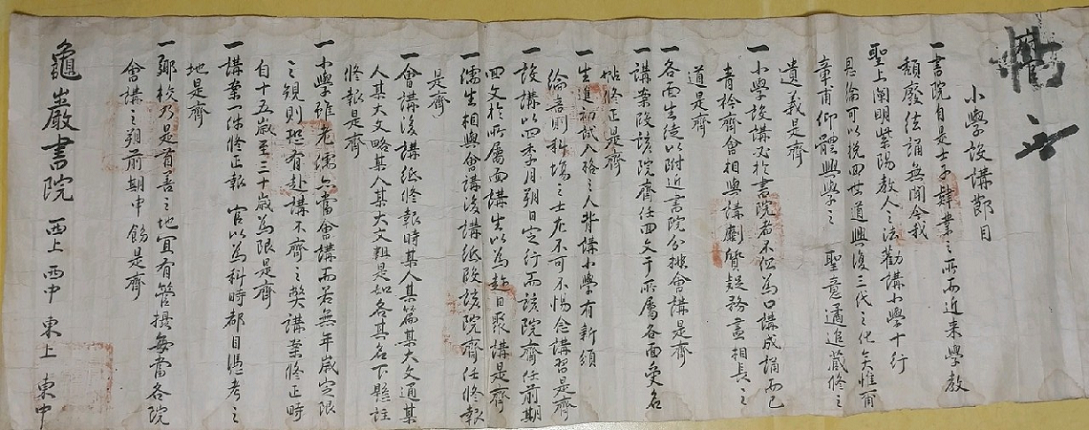 帖文
小學設講節目
一書院自是士子肄業之所而近來學敎
頹廢絃誦無聞今我
聖上闡明紫陽敎人之法勸講小學十行
恩綸可以挽回世道興復三代之化矣惟爾
章甫仰體興學之 聖意遹追藏修之
遺義是齊
一小學設講必於書院者不但爲口講成誦而已
青衿齊會相與講劘質疑務盡相長之
道是齊
一各面生徒以附近書院分排會講是齊
一講案段該院齊任四文于所屬各面受名
帖修正是齊
一生進初試入格之人背講小學有新頒
綸音則科場之士尤不可不惕念講習是齊
一設講以四季月朔日定行而該院齊任前期
四文於所屬面講生以爲趁日聚講是齊
一儒生相與會講後講紙段該院齊任修報
是齊
一會講後講紙修報時某人某篇某大文通某
人某大文略某人某大文粗是如各其名下懸註
修報是齊
一小學雖老儒亦當會講而若無年歲定限
之規則恐有赴講不齊之弊講案修正時
自十五歲至三十歲爲限是齊
一講案一件修正報 官以爲科時都目憑考之
地是齊
一鄕校乃是首善之地宜有管攝每當各院
會講之朔前期申飭是齊
龜巖書院 西上 西中 東上 東中